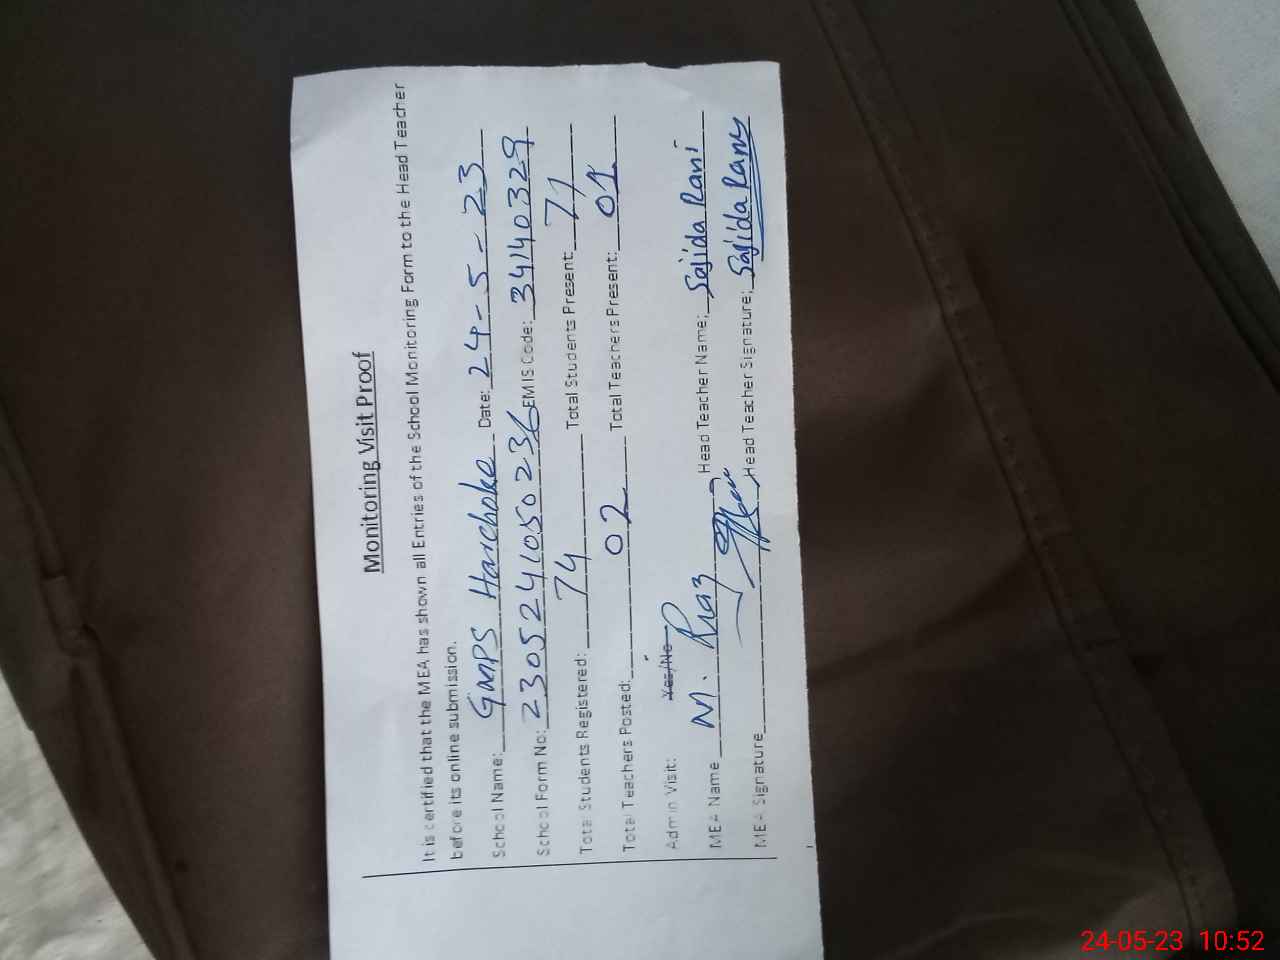 Monitoring Visit Proof
It is certified that the MEA has shown all Entries of the School Monitoring Form to the Head Teacher
before its online submission.
School Name: GMPS Harchoke Date: 24-5-23
School Form No: 2305241050236 EMIS Code: 34140329
Total Students Registered: 74 Total Students Present: 71
Total Teachers Posted: 02 Total Teachers Present: 01
Admin Visit: Yes/No
MEA Name M. Riaz Head Teacher Name: Sajida Rani
MEA Signature Head Teacher Signature: Sajida Rany
24-05-23 10:52